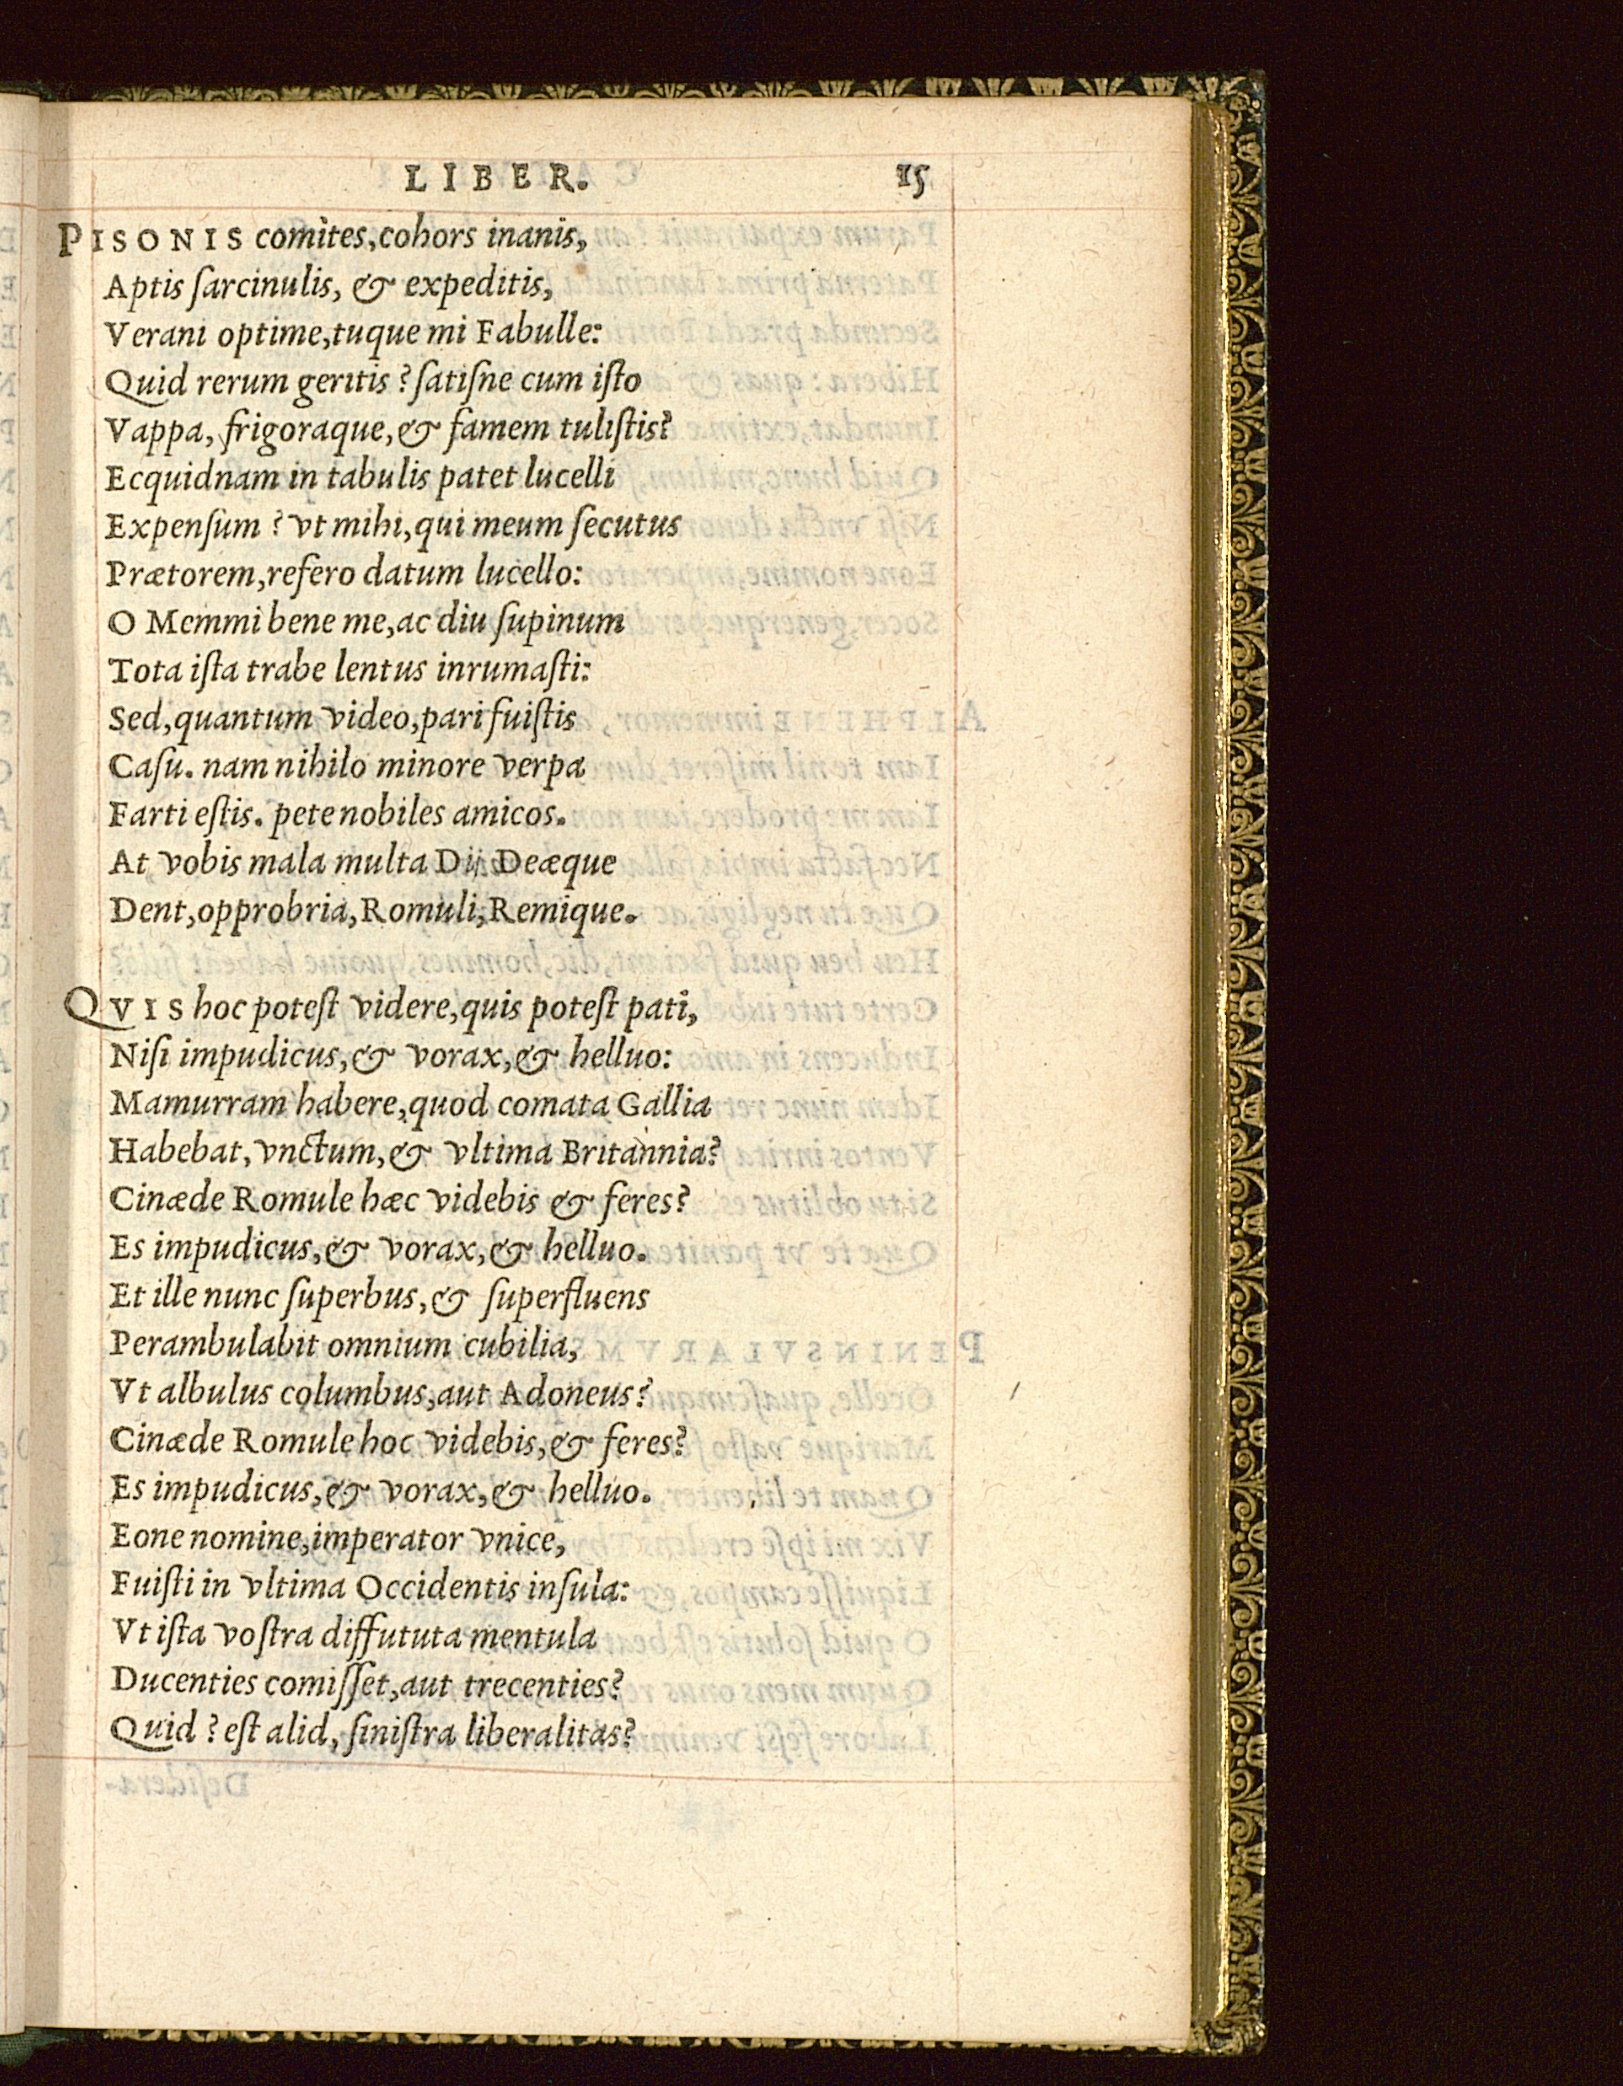 LIBER. 15
PISONIS comites, cohors inanis,
Aptis ſarcinulis, & expeditis,
Verani optime, tuque mi Fabulle:
Quid rerum geritis? ſatiſne cum iſto
Vappa, frigoraque, & famem tuliſtis?
Ecquidnam in tabulis patet lucelli
Expenſum? vt mihi, qui meum ſecutus
Prætorem, refero datum lucello:
O Memmi bene me, ac diu ſupinum
Tota iſta trabe lentus inrumaſti:
Sed, quantum video, pari fuiſtis
Caſu. nam nihilo minore verpa
Farti eſtis. pete nobiles amicos.
At vobis mala multa Dij Deæque
Dent, opprobria, Romuli, Remique.
QVIS hoc poteſt videre, quis poteſt pati,
Niſi impudicus, & vorax, & helluo:
Mamurram habere, quod comata Gallia
Habebat, vnctum, & vltima Britannia?
Cinæde Romule hæc videbis & feres?
Es impudicus, & vorax, & helluo.
Et ille nunc ſuperbus, & ſuperfluens
Perambulabit omnium cubilia,
Vt albulus columbus, aut Adoneus?
Cinæde Romule hoc videbis, & feres?
Es impudicus, & vorax, & helluo.
Eone nomine, imperator vnice,
Fuiſti in vltima Occidentis inſula:
Vt iſta voſtra diffututa mentula
Ducenties comiſſet, aut trecenties?
Quid? eſt alid, ſiniſtra liberalitas?